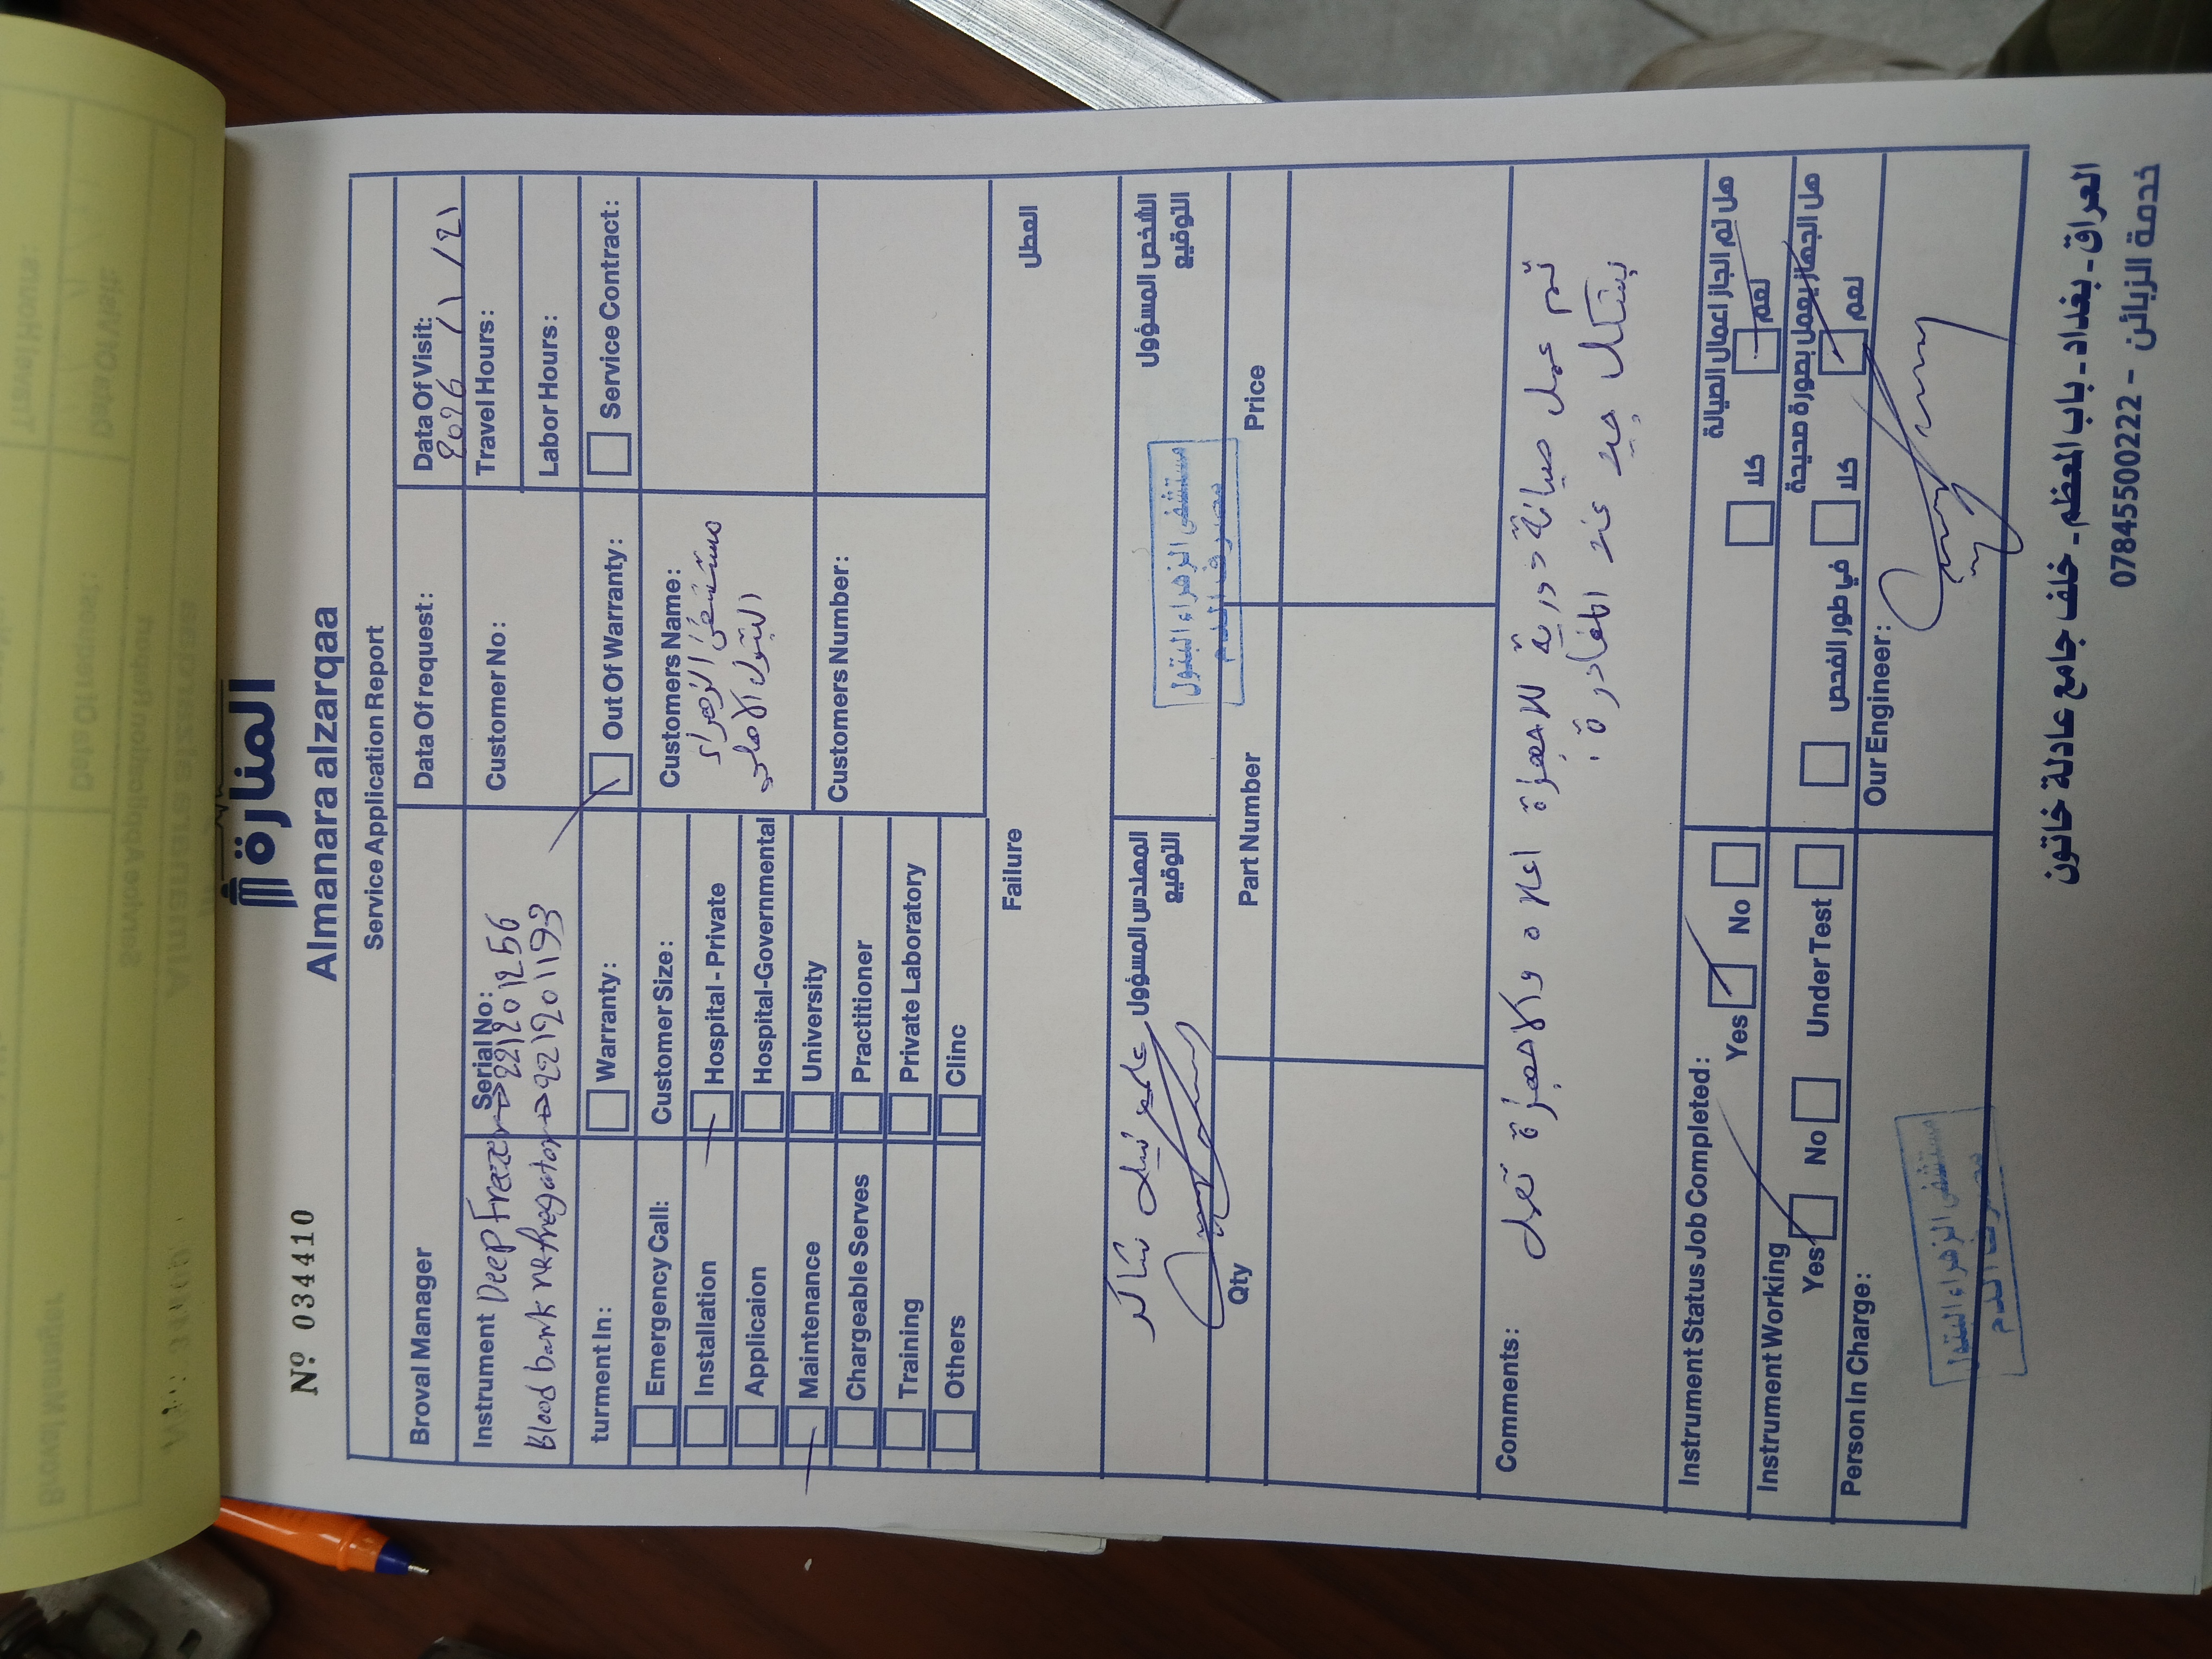 Nº 034410
المنارة
Almanara alzarqaa
Service Application Report
Broval Manager
Data Of request:
Data Of Visit:
2026 / 1 / 21
Instrument Deep Freezer → Serial No: 221201256
Blood bank refregator → 221201193
Customer No:
Travel Hours:
Labor Hours:
turment In:
Warranty:
Out Of Warranty:
Service Contract:
Emergency Call:
Installation
Applicaion
Maintenance
Chargeable Serves
Training
Others
Customer Size:
Hospital - Private
Hospital-Governmental
University
Practitioner
Private Laboratory
Clinc
Customers Name:
مستشفى الزهراء
البتول الاهلي
Customers Number:
Failure
العطل
المهندس المسؤول
التوقيع
علي نبيل شاكر
الشخص المسؤول
التوقيع
مستشفى الزهراء البتول
مصرف الدم
Qty
Part Number
Price
Comments:
تم عمل صيانة دورية للاجهزة اعلاه والاجهزة تعمل
بشكل جيد عند المغادرة.
Instrument Status Job Completed:
Yes
No
هل تم انجاز اعمال الصيانة
كلا
نعم
Instrument Working
Yes
No
Under Test
هل الجهاز يعمل بصورة صحيحة
في طور الفحص
كلا
نعم
Person In Charge:
مستشفى الزهراء البتول
مصرف الدم
Our Engineer:
العراق - بغداد - باب المعظم - خلف جامع عادلة خاتون
خدمة الزبائن - 07845500222